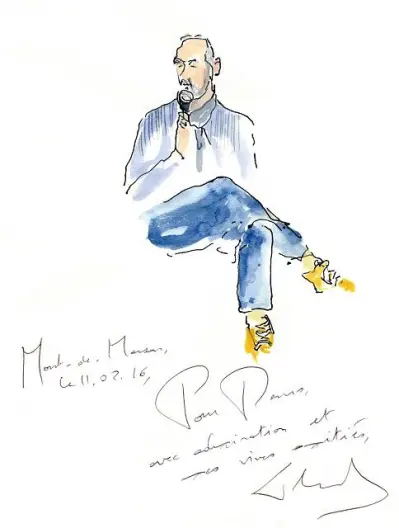 Mont-de-Marsan,
le 11.02.16,
Pour Denis,
avec admiration et
ses vives amitiés,